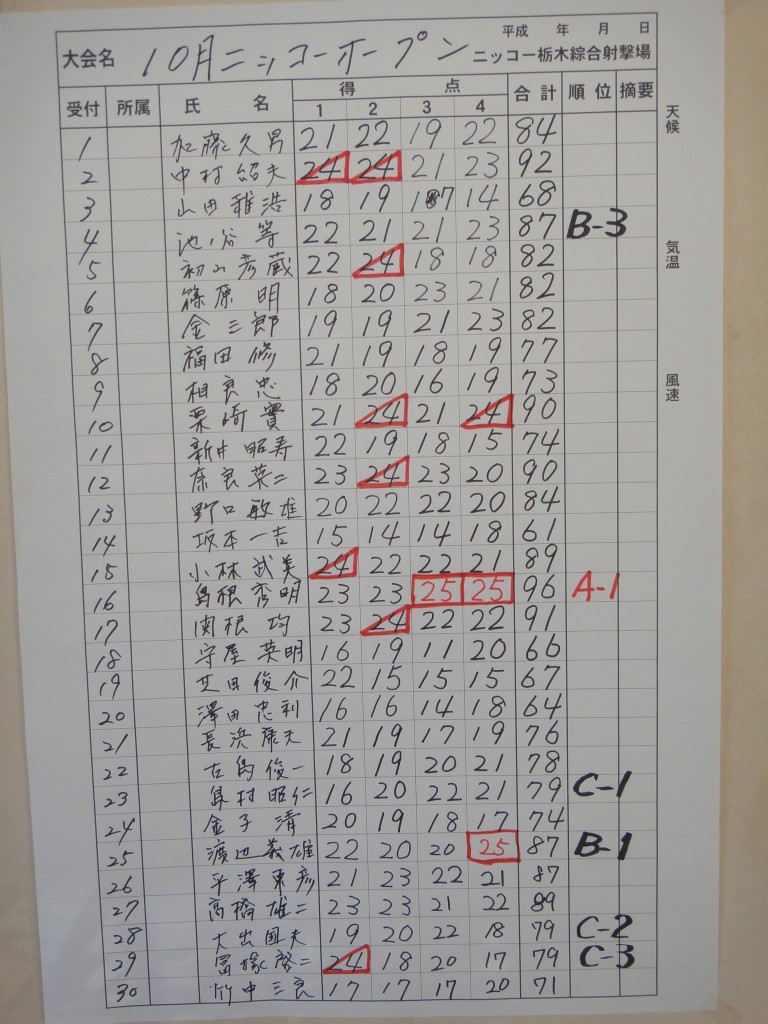 平成 年 月 日
大会名 10月ニッコーオープン ニッコー栃木綜合射撃場
受付 所属 氏 名 得 点 合計 順位 摘要
1 2 3 4
天候
気温
風速
1 加藤久男 21 22 19 22 84
2 中村紹夫 24 24 21 23 92
3 山田雅浩 18 19 17 14 68
4 池ノ谷等 22 21 21 23 87 B-3
5 初山彦蔵 22 24 18 18 82
6 篠原明 18 20 23 21 82
7 金三郎 19 19 21 23 82
8 福田修 21 19 18 19 77
9 相良忠 18 20 16 19 73
10 栗崎實 21 24 21 24 90
11 新井昭寿 22 19 18 15 74
12 奈良英二 23 24 23 20 90
13 野口敏雄 20 22 22 20 84
14 坂本一吉 15 14 14 18 61
15 小林武美 24 22 22 21 89
16 島根秀明 23 23 25 25 96 A-1
17 関根均 23 24 22 22 91
18 守屋英明 16 19 11 20 66
19 芝田俊介 22 15 15 15 67
20 澤田忠利 16 16 14 18 64
21 長浜康夫 21 19 17 19 76
22 古島俊一 18 19 20 21 78
23 村昭仁 16 20 22 21 79 C-1
24 金子清 20 19 18 17 74
25 渡辺義雄 22 20 20 25 87 B-1
26 平澤東彦 21 23 22 21 87
27 高橋雄二 23 23 21 22 89
28 大出国夫 19 20 22 18 79 C-2
29 冨塚啓二 24 18 20 17 79 C-3
30 竹中三良 17 17 17 20 71